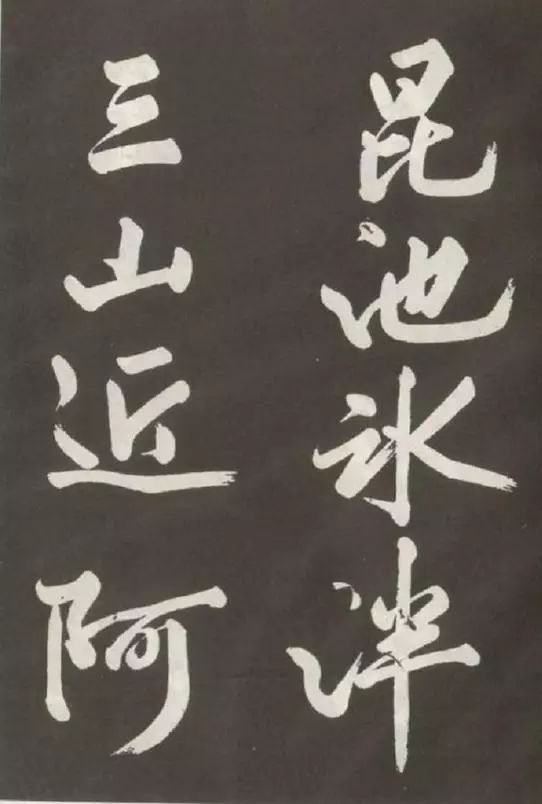 昆池氷泮
三山近阿